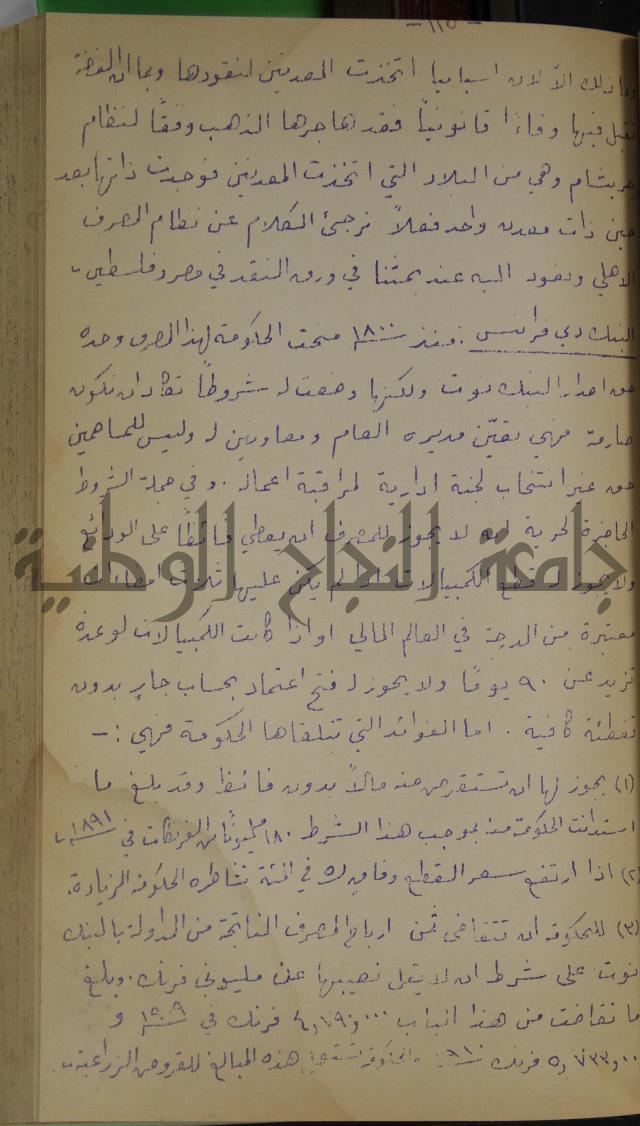 - ١١٥ -
وما ذلك الا لان اسبانيا اتخذت المعدنين لنقودها وبما ان الفضة
تقبل فيها وفاءً قانونياً فقد هاجرها الذهب وفقاً لنظام
جريشام وهي من البلاد التي اتخذت المعدنين فوجدت ذاتها بعد
حين ذات معدن واحد فعلاً نرجئ الكلام عن نظام المصرف
الاهلي ونعود اليه عند بحثنا في ورق النقد في مصر وفلسطين .
البنك دي فرانس : منذ ١٨٠٠ منحت الحكومة لهذا المصرف وحده
حق اصدار البنك نوت ولكنها وضعت له شروطاً تكاد ان تكون
صارمة فهي تعيّن مديره العام ومعاونين له وليس للمساهمين
حق غير انتخاب لجنة ادارية لمراقبة اعماله . وفي جملة الشروط
الحاضرة الحرية انه لا يجوز للمصرف ان يعطي فائضاً على الودائع
ولا يجوز له قطع الكمبيالات اذا لم يكن عليها ثلاث امضاءات
معتبرة من الدرجة في العالم المالي او اذا كانت الكمبيالات لوعدة
تزيد عن ٩٠ يوماً ولا يجوز له فتح اعتماد بحساب جارٍ بدون
تغطية كافية . اما الفوائد التي تتلقاها الحكومة فهي :-
(١) يجوز لها ان تستقرض منه مالاً بدون فائظ وقد بلغ ما
استدانت الحكومة منه بموجب هذا الشرط ١٨٠ مليوناً من الفرنكات في ١٨٩١ .
(٢) اذا ارتفع سعر القطع وفاق ال ٥ في المئة تشاطره الحكومة الزيادة .
(٣) للحكومة ان تتقاضى ثمن ارباح المصرف الناتجة من المداولة بالبنك
نوت على شرط ان لا يقل نصيبها عن مليوني فرنك . وبلغ
ما تقاضت من هذا الباب ٤,٧٩٠,٠٠٠ فرنك في ١٩٠٩ و
٥,٧٣٣,٠٠٠ فرنك هذه المبالغ للقروض الزراعية .
جامعة النجاح الوطنية